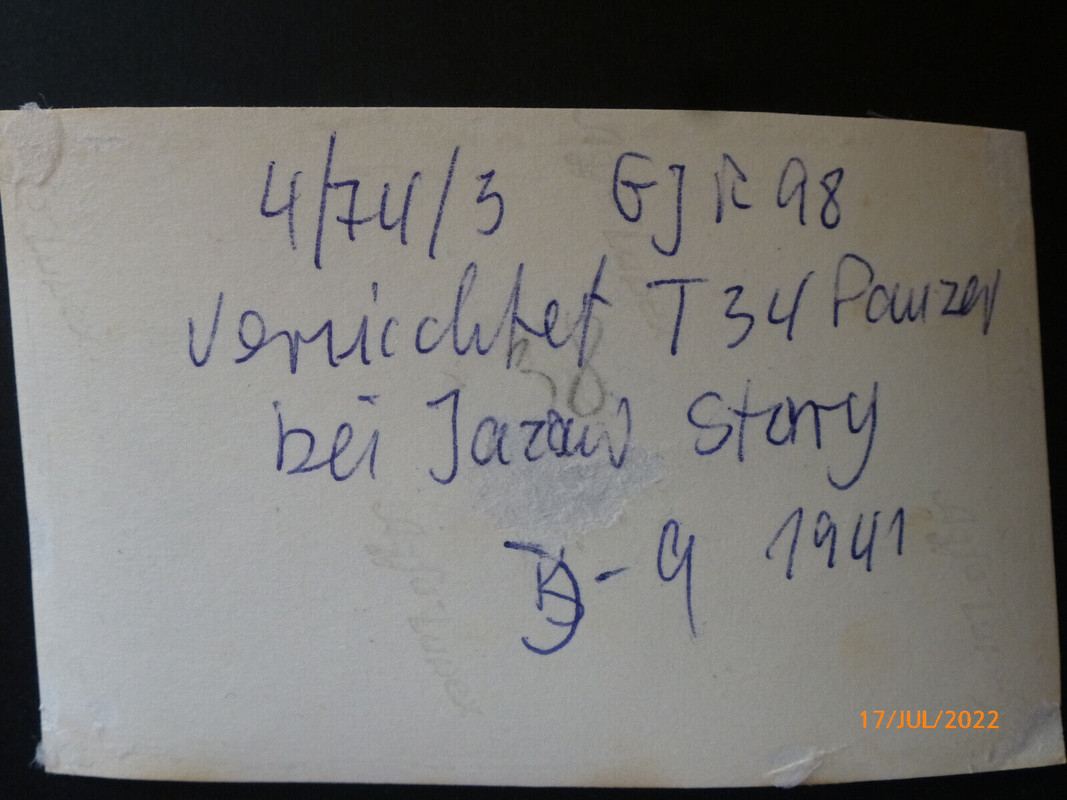 4/74/3 GJR 98
vernichtet T 34 Panzer
bei Jazow Stary
38
- 9 1941
17/JUL/2022